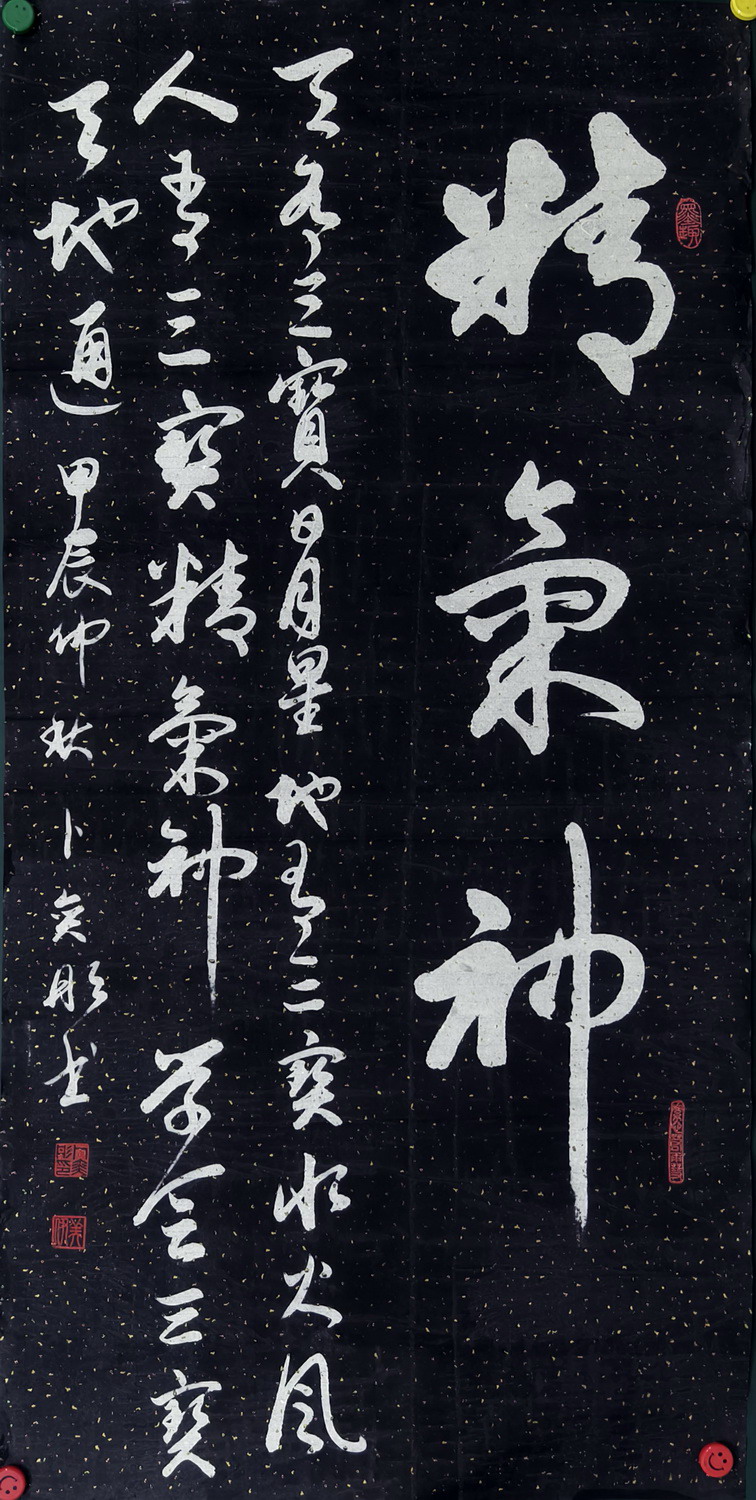 精氣神
天有三寶日月星地有三寶水火風
人有三寶精氣神学会三寶
天地通甲辰仲秋卜奕彤书